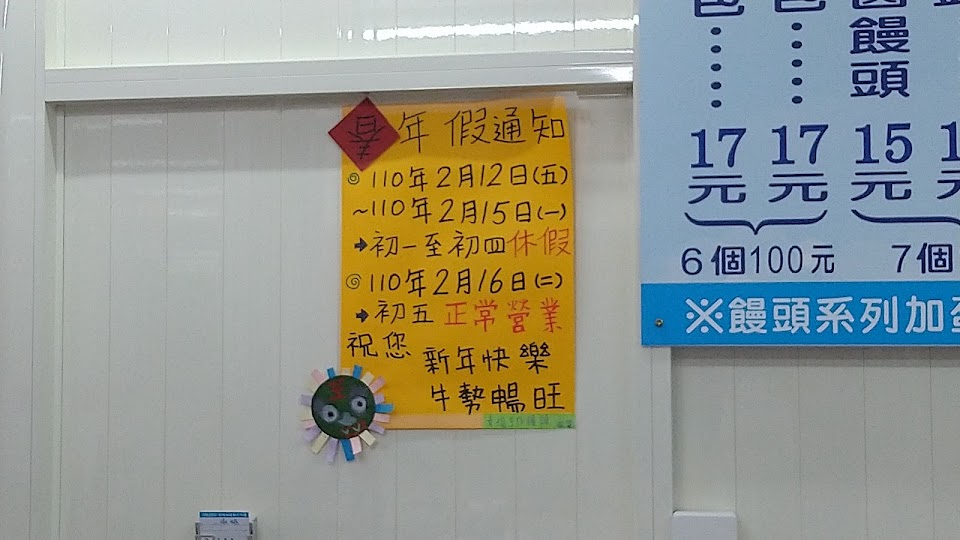 春年假通知
◎110年2月12日(五)
~110年2月15日(一)
➜初一至初四休假
◎110年2月16日(二)
➜初五正常營業
祝您
新年快樂
牛勢暢旺
饅頭
17元 17元 15元
6個100元 7個
※饅頭系列加蛋